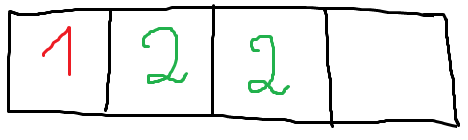 1 2 2